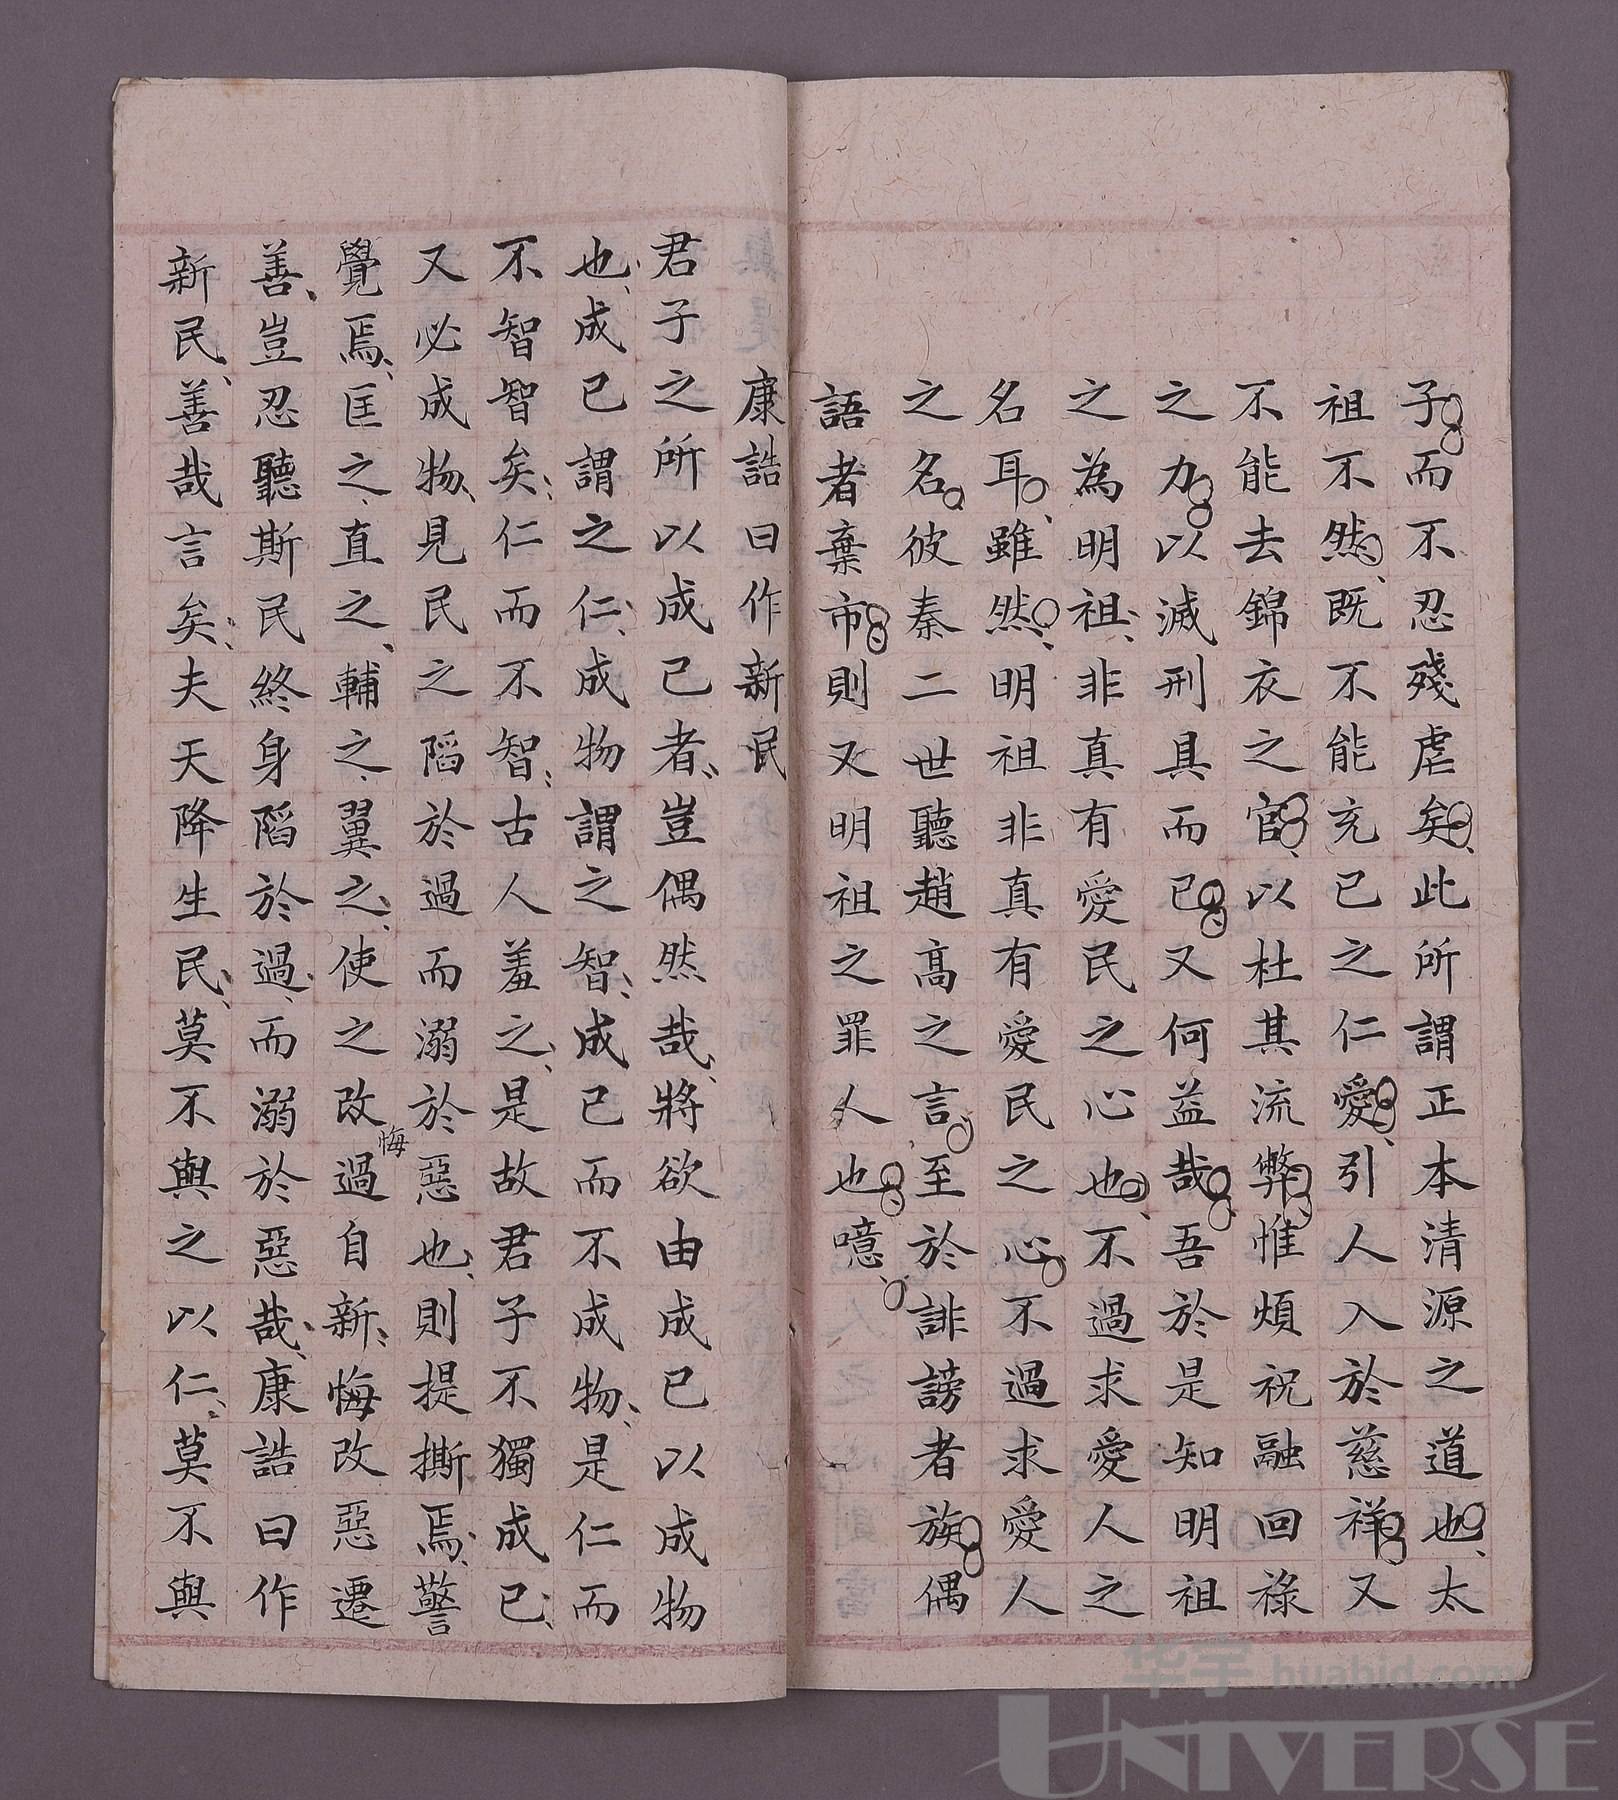 子而不忍殘虐矣此所謂正本清源之道也太
祖不然既不能充已之仁愛引人入於慈祥又
不能去錦衣之官以杜其流弊惟煩祝融回祿
之力以滅刑具而已又何益哉吾於是知明祖
之為明祖非真有愛民之心也不過求愛人之
名耳雖然明祖非真有愛民之心不過求愛人
之名彼秦二世聽趙高之言至於誹謗者族偶
語者棄市則又明祖之罪人也噫
康誥曰作新民
君子之所以成已者豈偶然哉將欲由成已以成物
也成已謂之仁成物謂之智成已而不成物是仁而
不智智矣仁而不智古人羞之是故君子不獨成已
又必成物見民之陷於過而溺於惡也則提撕焉警
覺焉匡之直之輔之翼之使之改悔過自新悔改惡遷
善豈忍聽斯民終身陷於過而溺於惡哉康誥曰作
新民善哉言矣夫天降生民莫不與之以仁莫不與
华宇 huabid.com
UNIVERSE